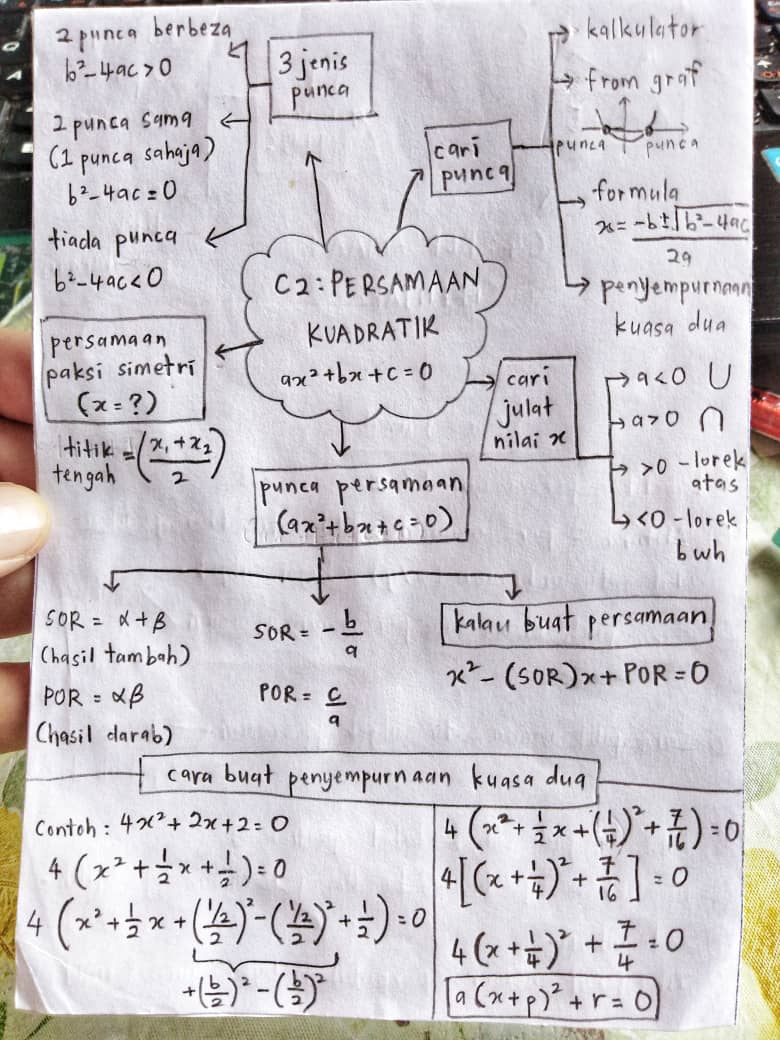 2 punca berbeza
b²-4ac>0
2 punca sama
(1 punca sahaja)
b²-4ac=0
tiada punca
b²-4ac<0
3 jenis
punca
cari
punca
kalkulator
from graf
punca punca
formula
x = -b±√b²-4ac / 2a
penyempurnaan
kuasa dua
C2: PERSAMAAN
KUADRATIK
ax²+bx+c=0
persamaan
paksi simetri
(x=?)
titik tengah = (x₁+x₂ / 2)
cari
julat
nilai x
a<0 ∪
a>0 ∩
>0 -lorek
atas
<0 -lorek
bwh
punca persamaan
(ax²+bx+c=0)
SOR = α+β
(hasil tambah)
POR = αβ
(hasil darab)
SOR = - b/a
POR = c/a
kalau buat persamaan
x² - (SOR)x + POR = 0
cara buat penyempurnaan kuasa dua
Contoh: 4x²+2x+2=0
4 (x² + 1/2 x + 1/2) = 0
4 (x² + 1/2 x + (1/2 / 2)² - (1/2 / 2)² + 1/2) = 0
+(b/2)² - (b/2)²
4 (x² + 1/2 x + (1/4)² + 7/16) = 0
4[(x + 1/4)² + 7/16] = 0
4(x + 1/4)² + 7/4 = 0
a(x+p)² + r = 0